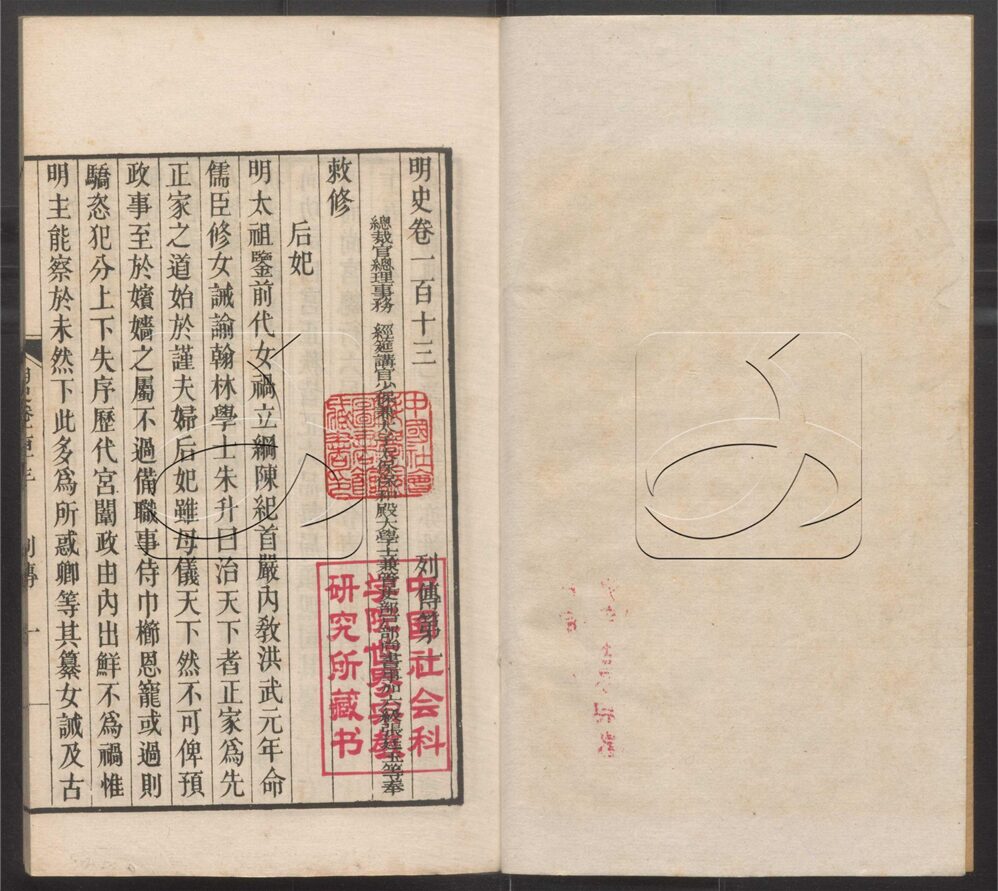 明史卷一百十三
列傳第一
總裁官總理事務 經筵講官少保兼太子太保保和殿大學士兼管吏部戶部尚書事加六級張廷玉等奉
敕修
后妃
明太祖鑒前代女禍立綱陳紀首嚴內敎洪武元年命
儒臣修女誡諭翰林學士朱升曰治天下者正家爲先
正家之道始於謹夫婦后妃雖母儀天下然不可俾預
政事至於嬪嬙之屬不過備職事侍巾櫛恩寵或過則
驕恣犯分上下失序歷代宮闈政由內出鮮不爲禍惟
明主能察於未然下此多爲所惑卿等其纂女誡及古
中国社会科
学院世界宗教
研究所藏书